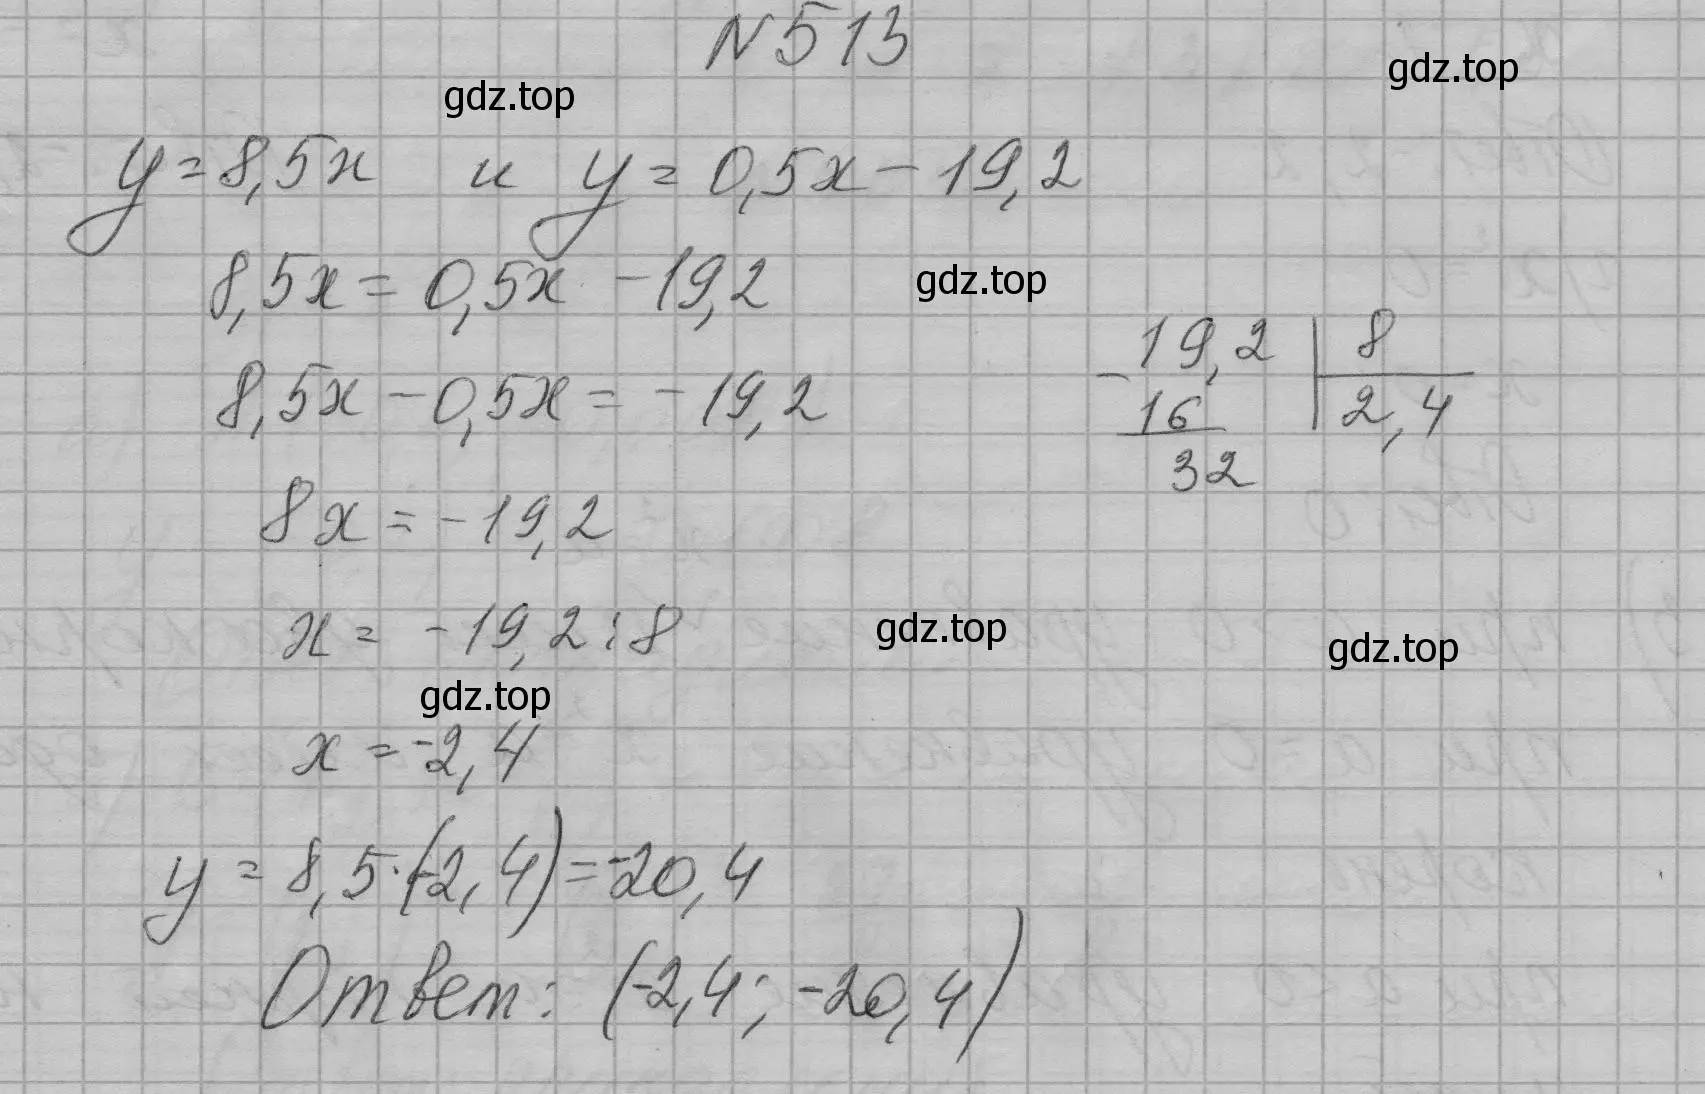 N 513
gdz.top
gdz.top
y = 8,5x и y = 0,5x - 19,2
8,5x = 0,5x - 19,2
gdz.top
8,5x - 0,5x = -19,2
- 19,2 | 8
16 | 2,4
32
8x = -19,2
x = -19,2 : 8
gdz.top
gdz.top
gdz.top
x = -2,4
y = 8,5 · (-2,4) = -20,4
Ответ: (-2,4; -20,4)